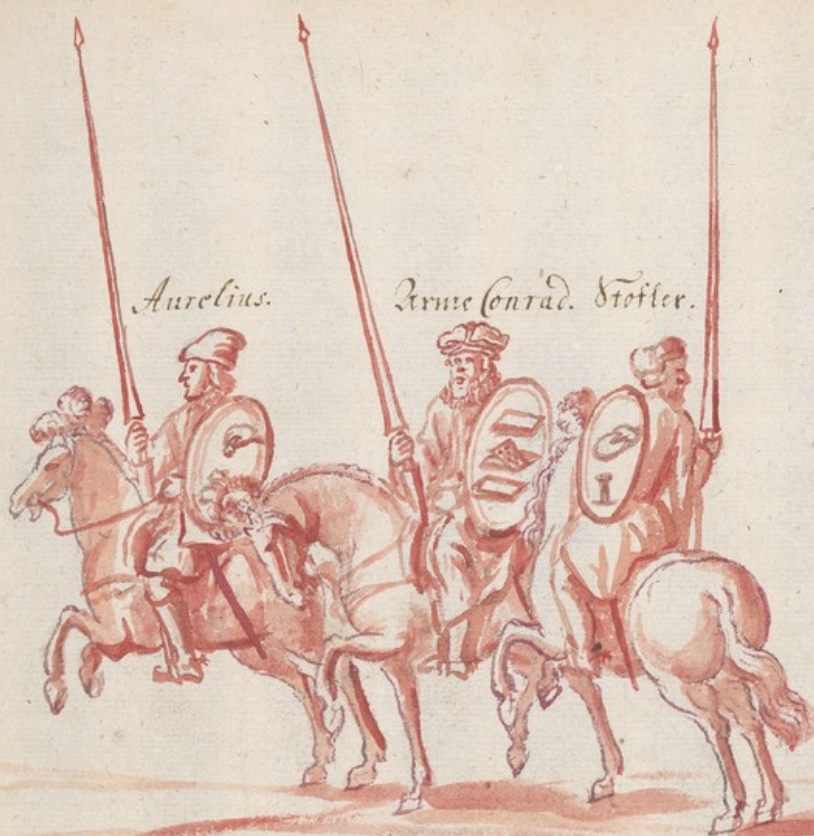 Aurelius.
Arme Conrad. Stofler.